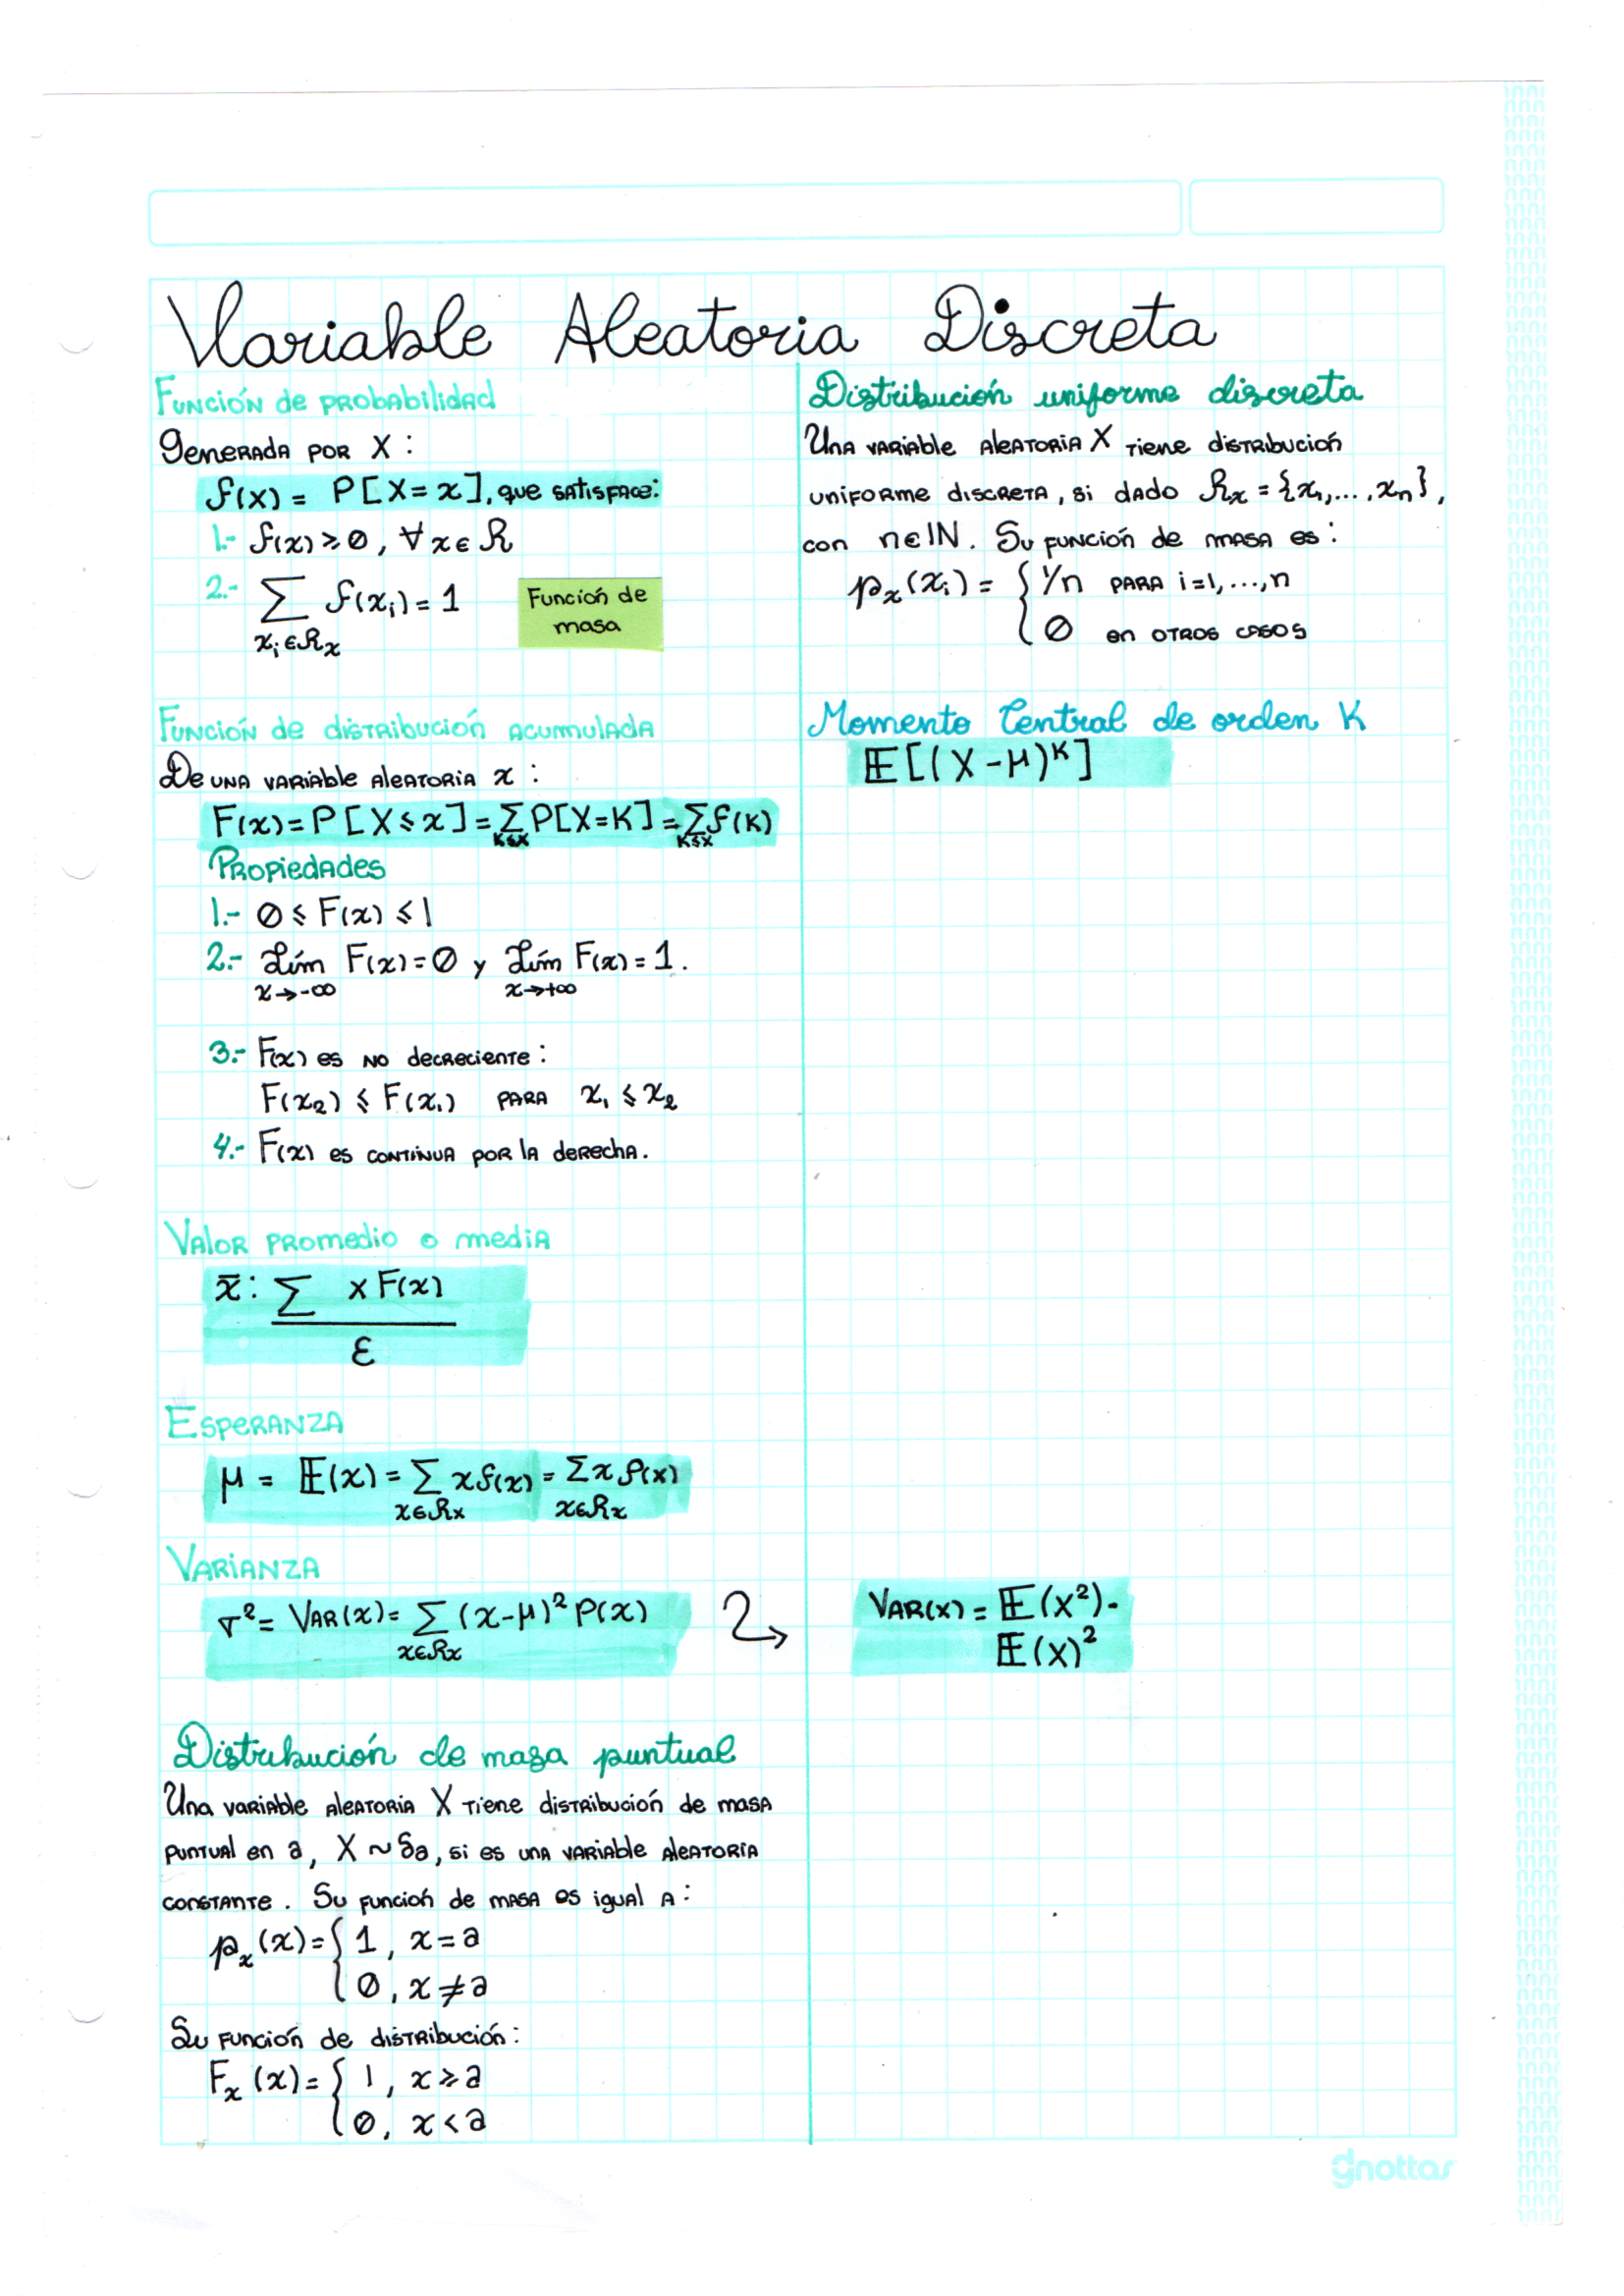 Variable Aleatoria Discreta
Función de probabilidad
Generada por X :
f(x) = P[X = x], que satisface:
1.- f(x) ≥ 0, ∀ x ∈ R
2.- ∑ f(xᵢ) = 1
xᵢ ∈ Rx
Función de
masa
Función de distribución acumulada
De una variable aleatoria x :
F(x) = P[X ≤ x] = ∑ P[X = K] = ∑ f(K)
K≤X K≤X
Propiedades
1.- 0 ≤ F(x) ≤ 1
2.- Lím F(x) = 0 y Lím F(x) = 1.
x→-∞ x→+∞
3.- F(x) es no decreciente :
F(x₂) ≤ F(x₁) para x₁ ≤ x₂
4.- F(x) es continua por la derecha.
Valor promedio o media
x̄ : ∑ x F(x)
ε
Esperanza
μ = 𝔼(x) = ∑ x f(x) = ∑ x f(x)
x∈Rx x∈Rx
Varianza
σ² = Var(x) = ∑ (x-μ)² P(x)
x∈Rx
Distribución de masa puntual
Una variable aleatoria X tiene distribución de masa
puntual en a, X ~ δa, si es una variable aleatoria
constante. Su función de masa es igual a :
pₓ(x) = { 1, x = a
0, x ≠ a
Su función de distribución :
Fₓ(x) = { 1, x ≥ a
0, x < a
Distribución uniforme discreta
Una variable aleatoria X tiene distribución
uniforme discreta, si dado Rx = {x₁, ..., xn},
con n ∈ ℕ. Su función de masa es :
pₓ(xᵢ) = { 1/n para i = 1, ..., n
0 en otros casos
Momento Central de orden K
𝔼[(X - μ)ᴷ]
Var(x) = 𝔼(x²) -
𝔼(x)²
gnottas